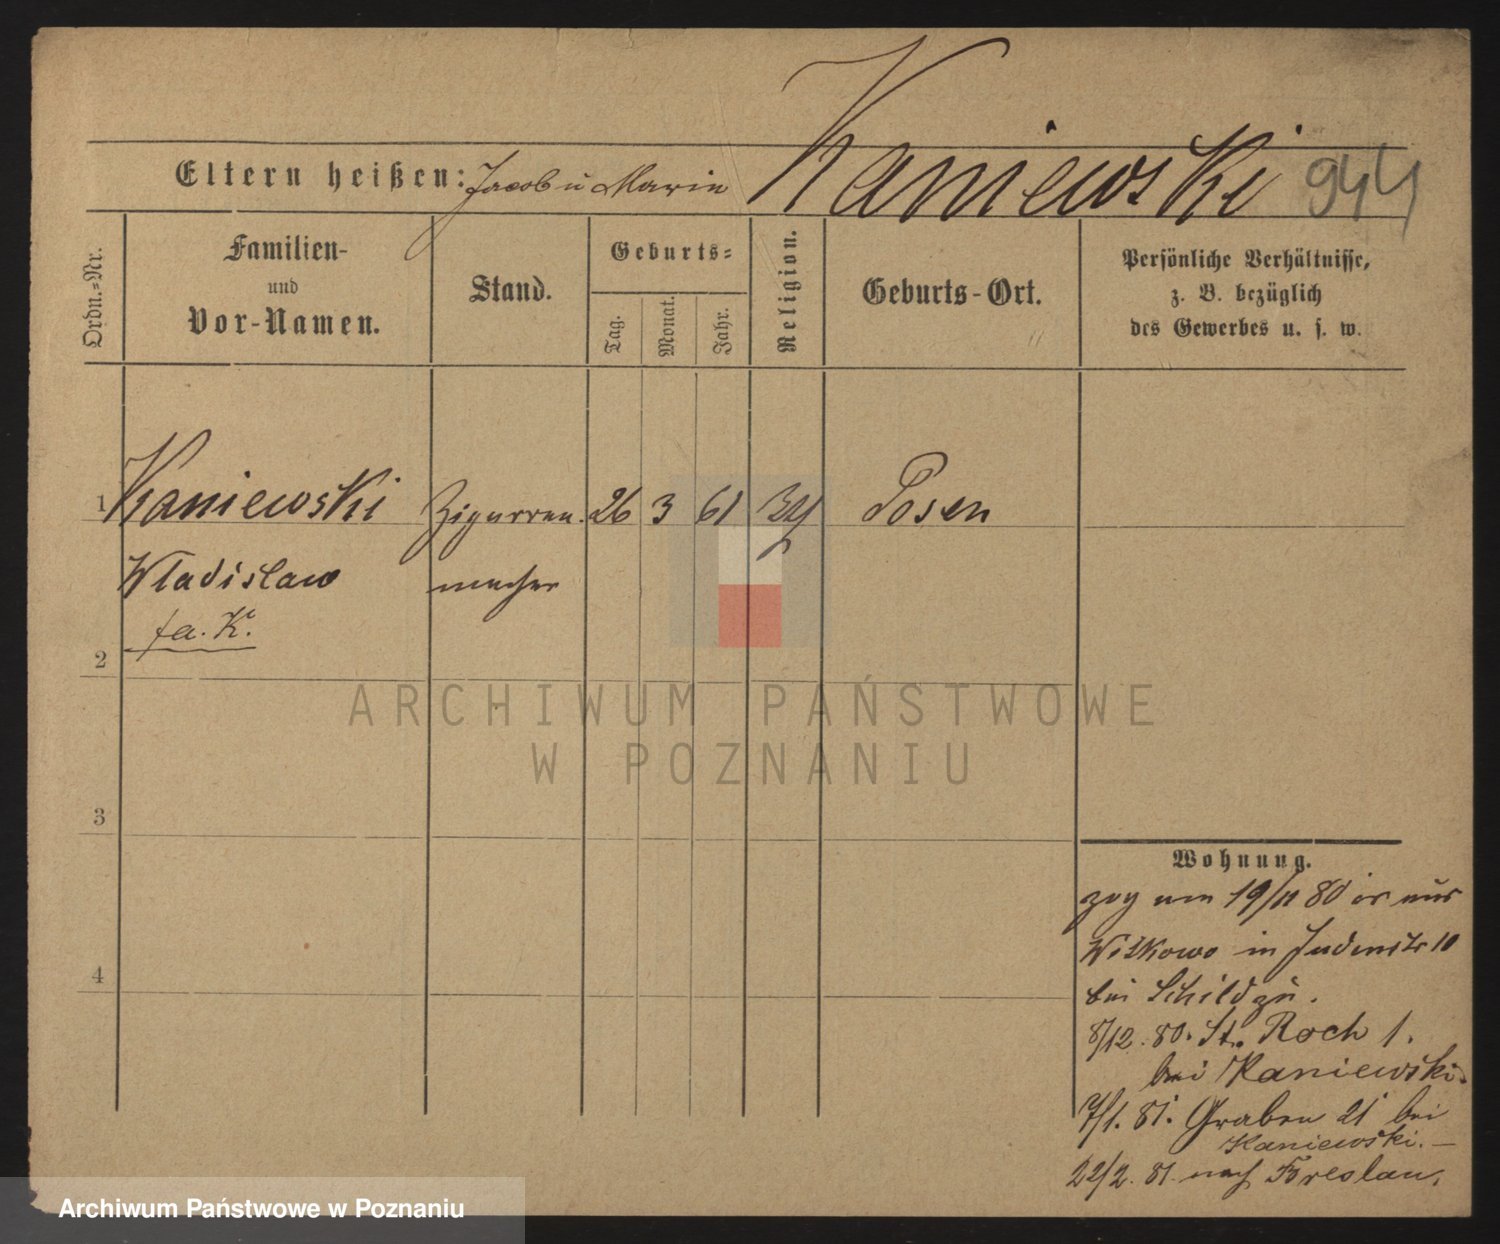 Kaniewski 944
Eltern heißen: Jacob u Marie
Ordn.-Nr.
Familien-
und
Vor-Namen.
Stand.
Geburts-
Tag.
Monat.
Jahr.
Religion.
Geburts-Ort.
Persönliche Verhältnisse,
z. B. bezüglich
des Gewerbes u. s. w.
1 Kaniewski Zigarren 26 3 61 Posen
Wladislaw macher
fa. K.
2
ARCHIWUM PAŃSTWOWE
W POZNANIU
3
4
Wohnung.
zog am 19/11 80 aus
Witkowo in Judenstr 10
bei Schild zu.
8/12. 80. St. Roch 1.
bei Kaniewski.
7/1. 81. Graben 21 bei
Kaniewski. —
22/2. 81. nach Breslau.
Archiwum Państwowe w Poznaniu